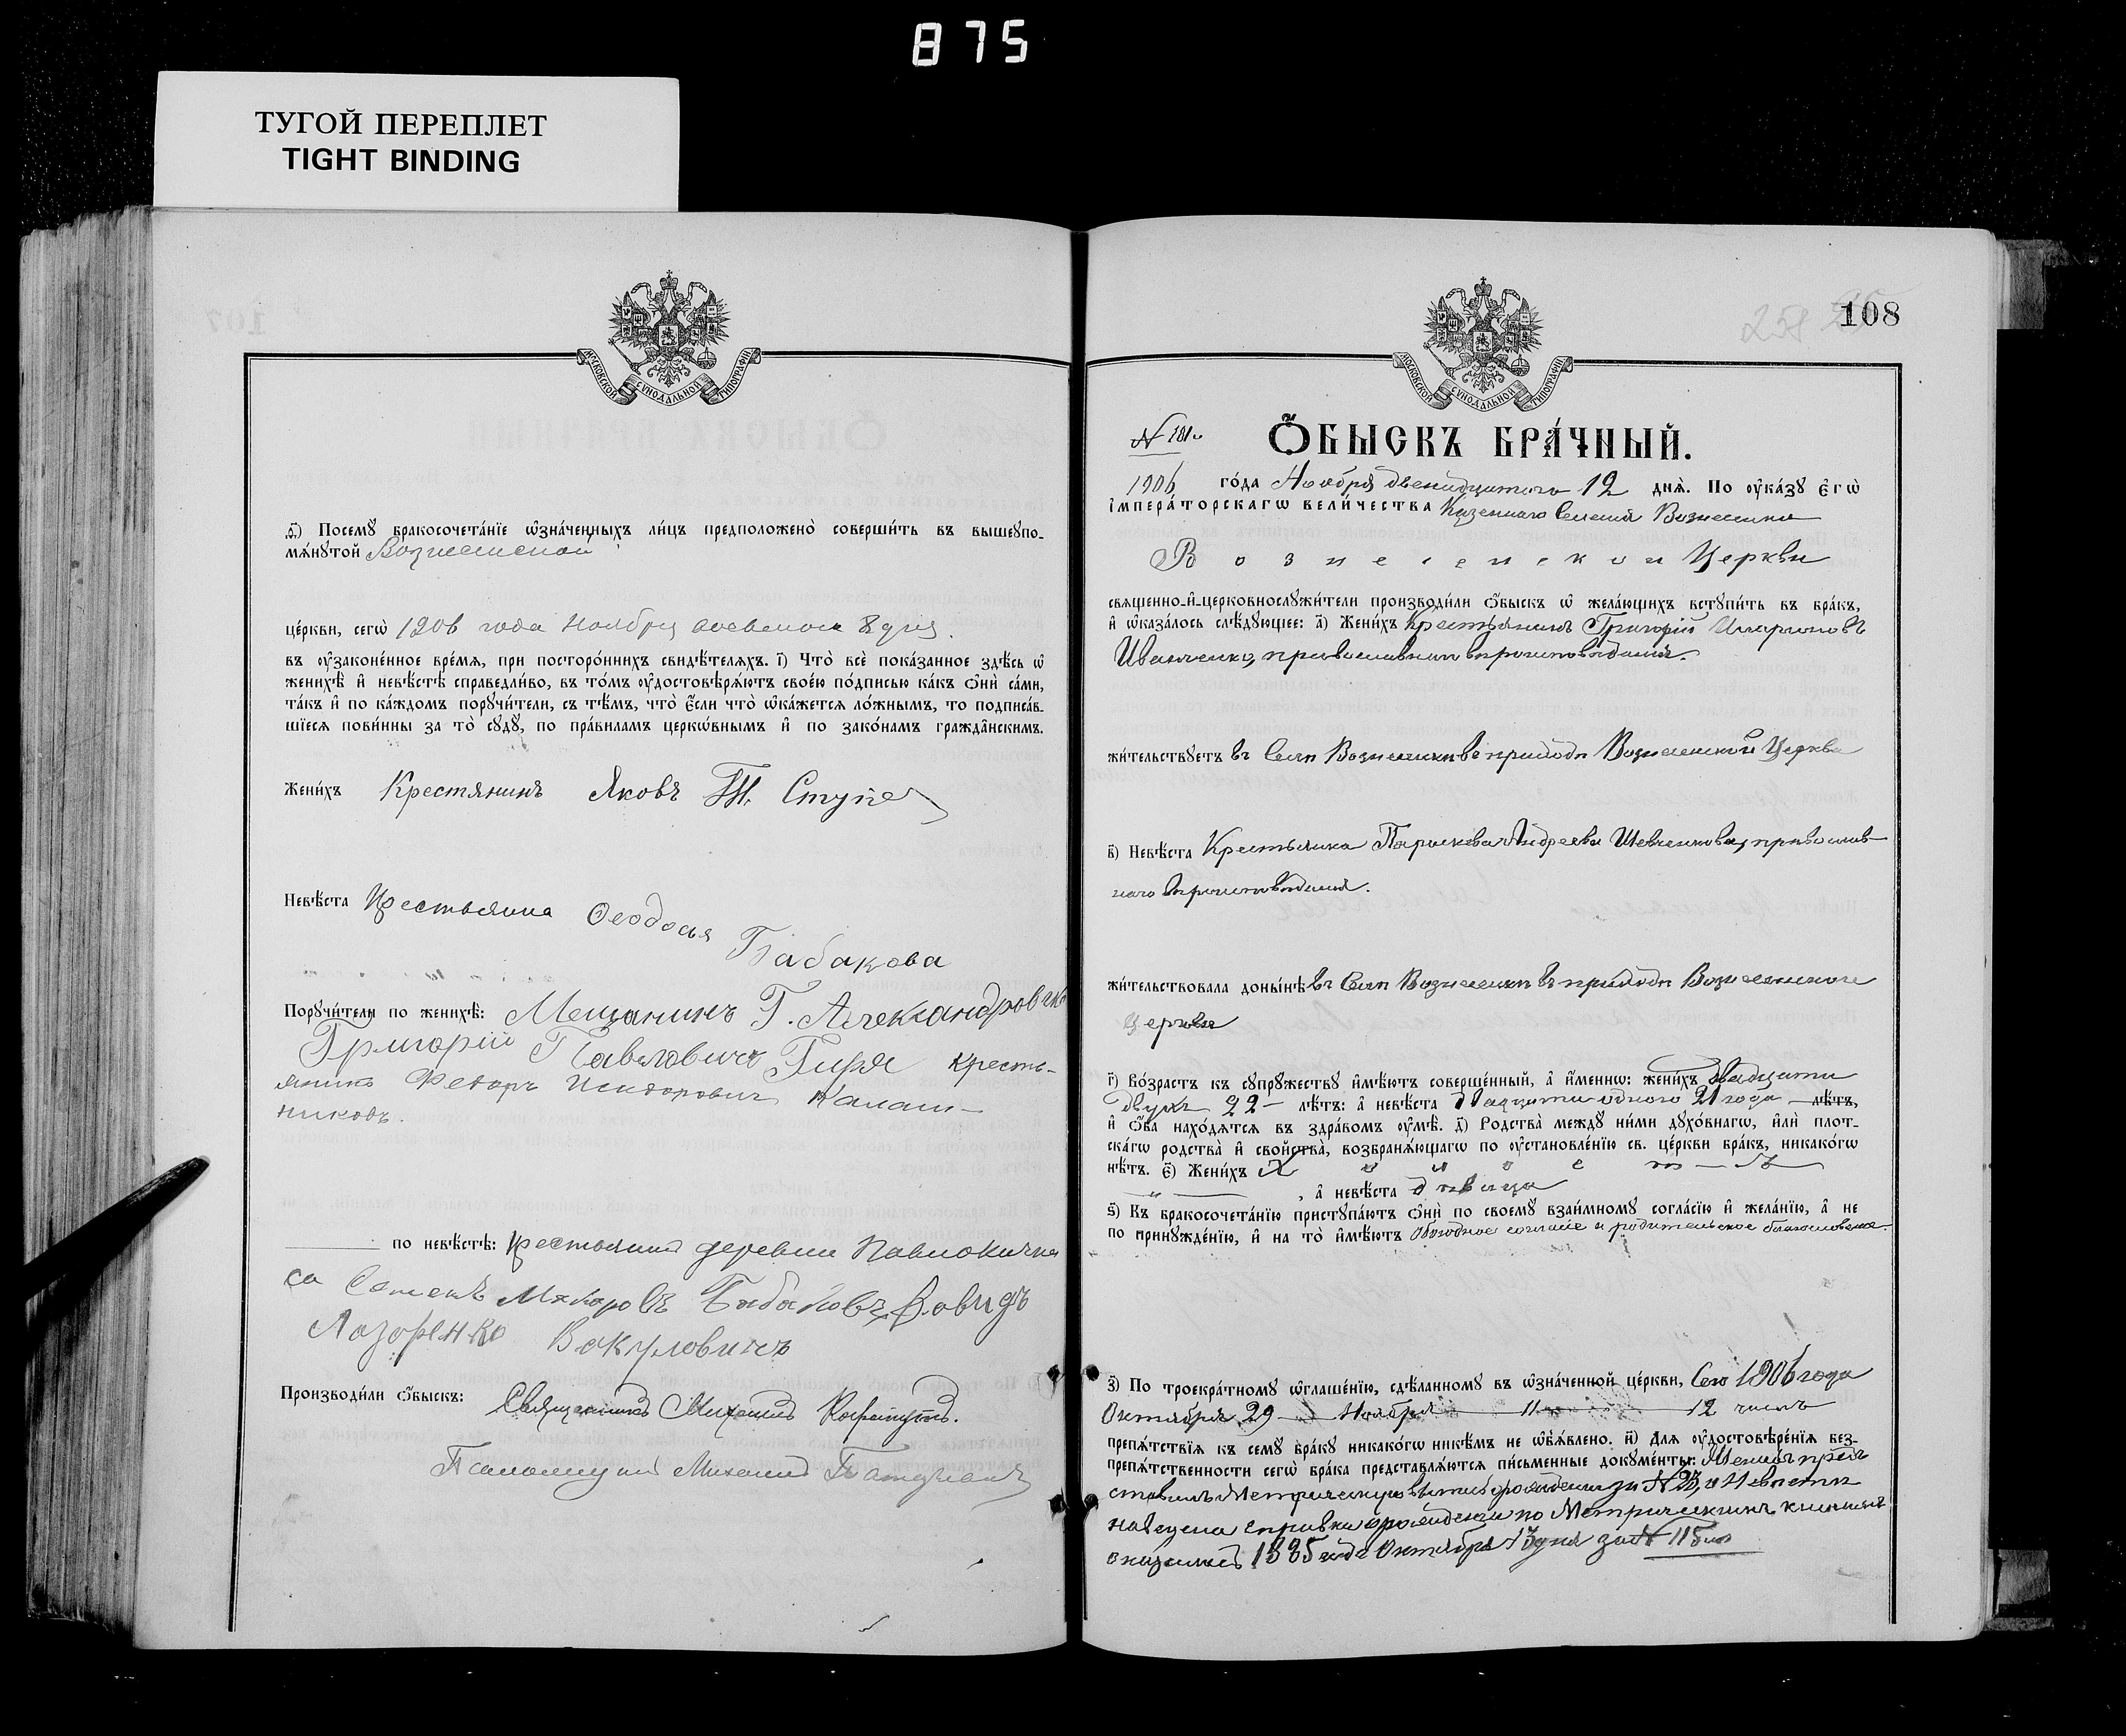 875
ТУГОЙ ПЕРЕПЛЕТ
TIGHT BINDING
МОСКОВСКОЙ СѴНОДАЛЬНОЙ ТИПОГРАФІИ
ѳ҃) Посемꙋ бракосочета́нїе ѡзна́ченныхъ ли́цъ предположено̀ соверши́ть въ вышеꙋпо-
мѧ́нꙋтой Вознесенской
це́ркви, сегѡ̀ 1906 года Ноября восьмого 8 дня.
въ ᲂу҆законе́нное вре́мѧ, при посторо́ннихъ свидѣ́телѧхъ. і҃) Что̀ всѐ пока́занное здѣ́сь ѡ҆
женихѣ̀ и҆ невѣ́стѣ справедли́во, въ то́мъ ᲂу҆достовѣрѧ́ютъ свое́ю по́дписью ка́къ ѻ҆нѝ са́ми,
та́къ и҆ по ка́ждомъ порꙋчи́тели, съ тѣ́мъ, что̀ є҆́сли что̀ ѡ҆ка́жетсѧ ло́жнымъ, то подписа́в-
шїесѧ пови́нны за то̀ сꙋдꙋ̀, по пра́виламъ церкѡ́внымъ и҆ по зако́намъ гражда̂нскимъ.
Жени́хъ Крестянинъ Яковъ Т. Ступе
Невѣ́ста Крестьянка Ѳеодосия
Бабакова
Порꙋчи́тели по женихѣ̀: Мещанинъ Г. Александровск
Григорій Павловичъ Гиря кресть-
янинъ Федоръ Исидоровичъ Калаш-
никовъ.
по невѣ́стѣ: Крестьянинъ деревни Павлокичка
са Семенъ Макаровъ Бабаковъ, Довидъ
Лазоренко Вакуловичъ
Производи́ли ѻ҆́быскъ: Священникъ Михаилъ
Псаломщикъ Михаилъ
МОСКОВСКОЙ СѴНОДАЛЬНОЙ ТИПОГРАФІИ
258
108
N 101й
Ѻ҆́БЫСКЪ БРА́ЧНЫЙ.
1906 го́да Ноября двенадцатого 12 днѧ̀. По ᲂу҆ка́зꙋ є҆гѡ̀
і҆мпера́торскагѡ вели́чества Казенного Селенія Вознесенка
Вознесенской Церкви
свѧще́нно-и҆-церковнослꙋжи́тели производи́ли ѻ҆́быскъ ѡ҆ жела́ющихъ встꙋпи́ть въ бра́къ,
и҆ ѡ҆каза́лось слѣ́дꙋющее: а҃) Жени́хъ Крестьянинъ Григорій
Иванченко, православнаго вѣроисповѣданія.
жи́тельствꙋетъ въ Селѣ Вознесенкѣ въ приходѣ Вознесенской Церкви
в҃) Невѣ́ста Крестьянка Параскева Андреева Шевченкова, православ-
наго вѣроисповѣданія.
жи́тельствовала доны́нѣ въ Селѣ Вознесенкѣ въ приходѣ Вознесенской
церкви
г҃) Во́зрастъ къ сꙋпрꙋ́жествꙋ и҆мѣ́ютъ соверше́нный, а҆ и҆́меннѡ: жени́хъ двадцати
двухъ 22 - лѣ́тъ: а҆ невѣ́ста двадцати одного 21 года - лѣ́тъ,
и҆ ѻ҆́ба нахо́дѧтсѧ въ здра́вомъ ᲂу҆мѣ̀. д҃) Родства̀ междꙋ̀ ни́ми дꙋхо́внагѡ, и҆лѝ плот-
ска́гѡ родства̀ и҆ сво́йства̀, возбранѧ́ющагѡ по ᲂу҆становле́нїю св. це́ркви бра́къ, никако́гѡ
нѣ́тъ. є҃) Жени́хъ Холостъ
, а҆ невѣ́ста дѣвица
ѕ҃) Къ бракосочета́нїю пристꙋпа́ютъ ѻ҆нѝ по своемꙋ̀ взаи́мномꙋ согла́сїю и҆ жела́нїю, а҆ не
по принꙋжде́нїю, и҆ на то̀ и҆мѣ́ютъ Обоюдное согласіе и родительское благословеніе.
з҃) По троекра́тномꙋ ѡ҆глаше́нїю, сдѣ́ланномꙋ въ ѡ҆зна́ченной це́ркви, Сего 1906 года
Октября 29 - Ноября 11 12 числъ
препѧ́тствїѧ къ семꙋ̀ бра́кꙋ никако́гѡ никѣ́мъ не ѡ҆б̾ѧ́влено. и҃) Длѧ ᲂу҆достовѣре́нїѧ без-
препѧ́тственности сегѡ̀ бра́ка представлѧ́ютсѧ пи́сьменные докꙋме́нты: Женихъ пред-
ставилъ Метрическую выпись о рожденіи за N 23, о Невѣстѣ
наведена справка о рожденіи по Метрическимъ книгамъ
1885 года Октября 13 дня за N 115